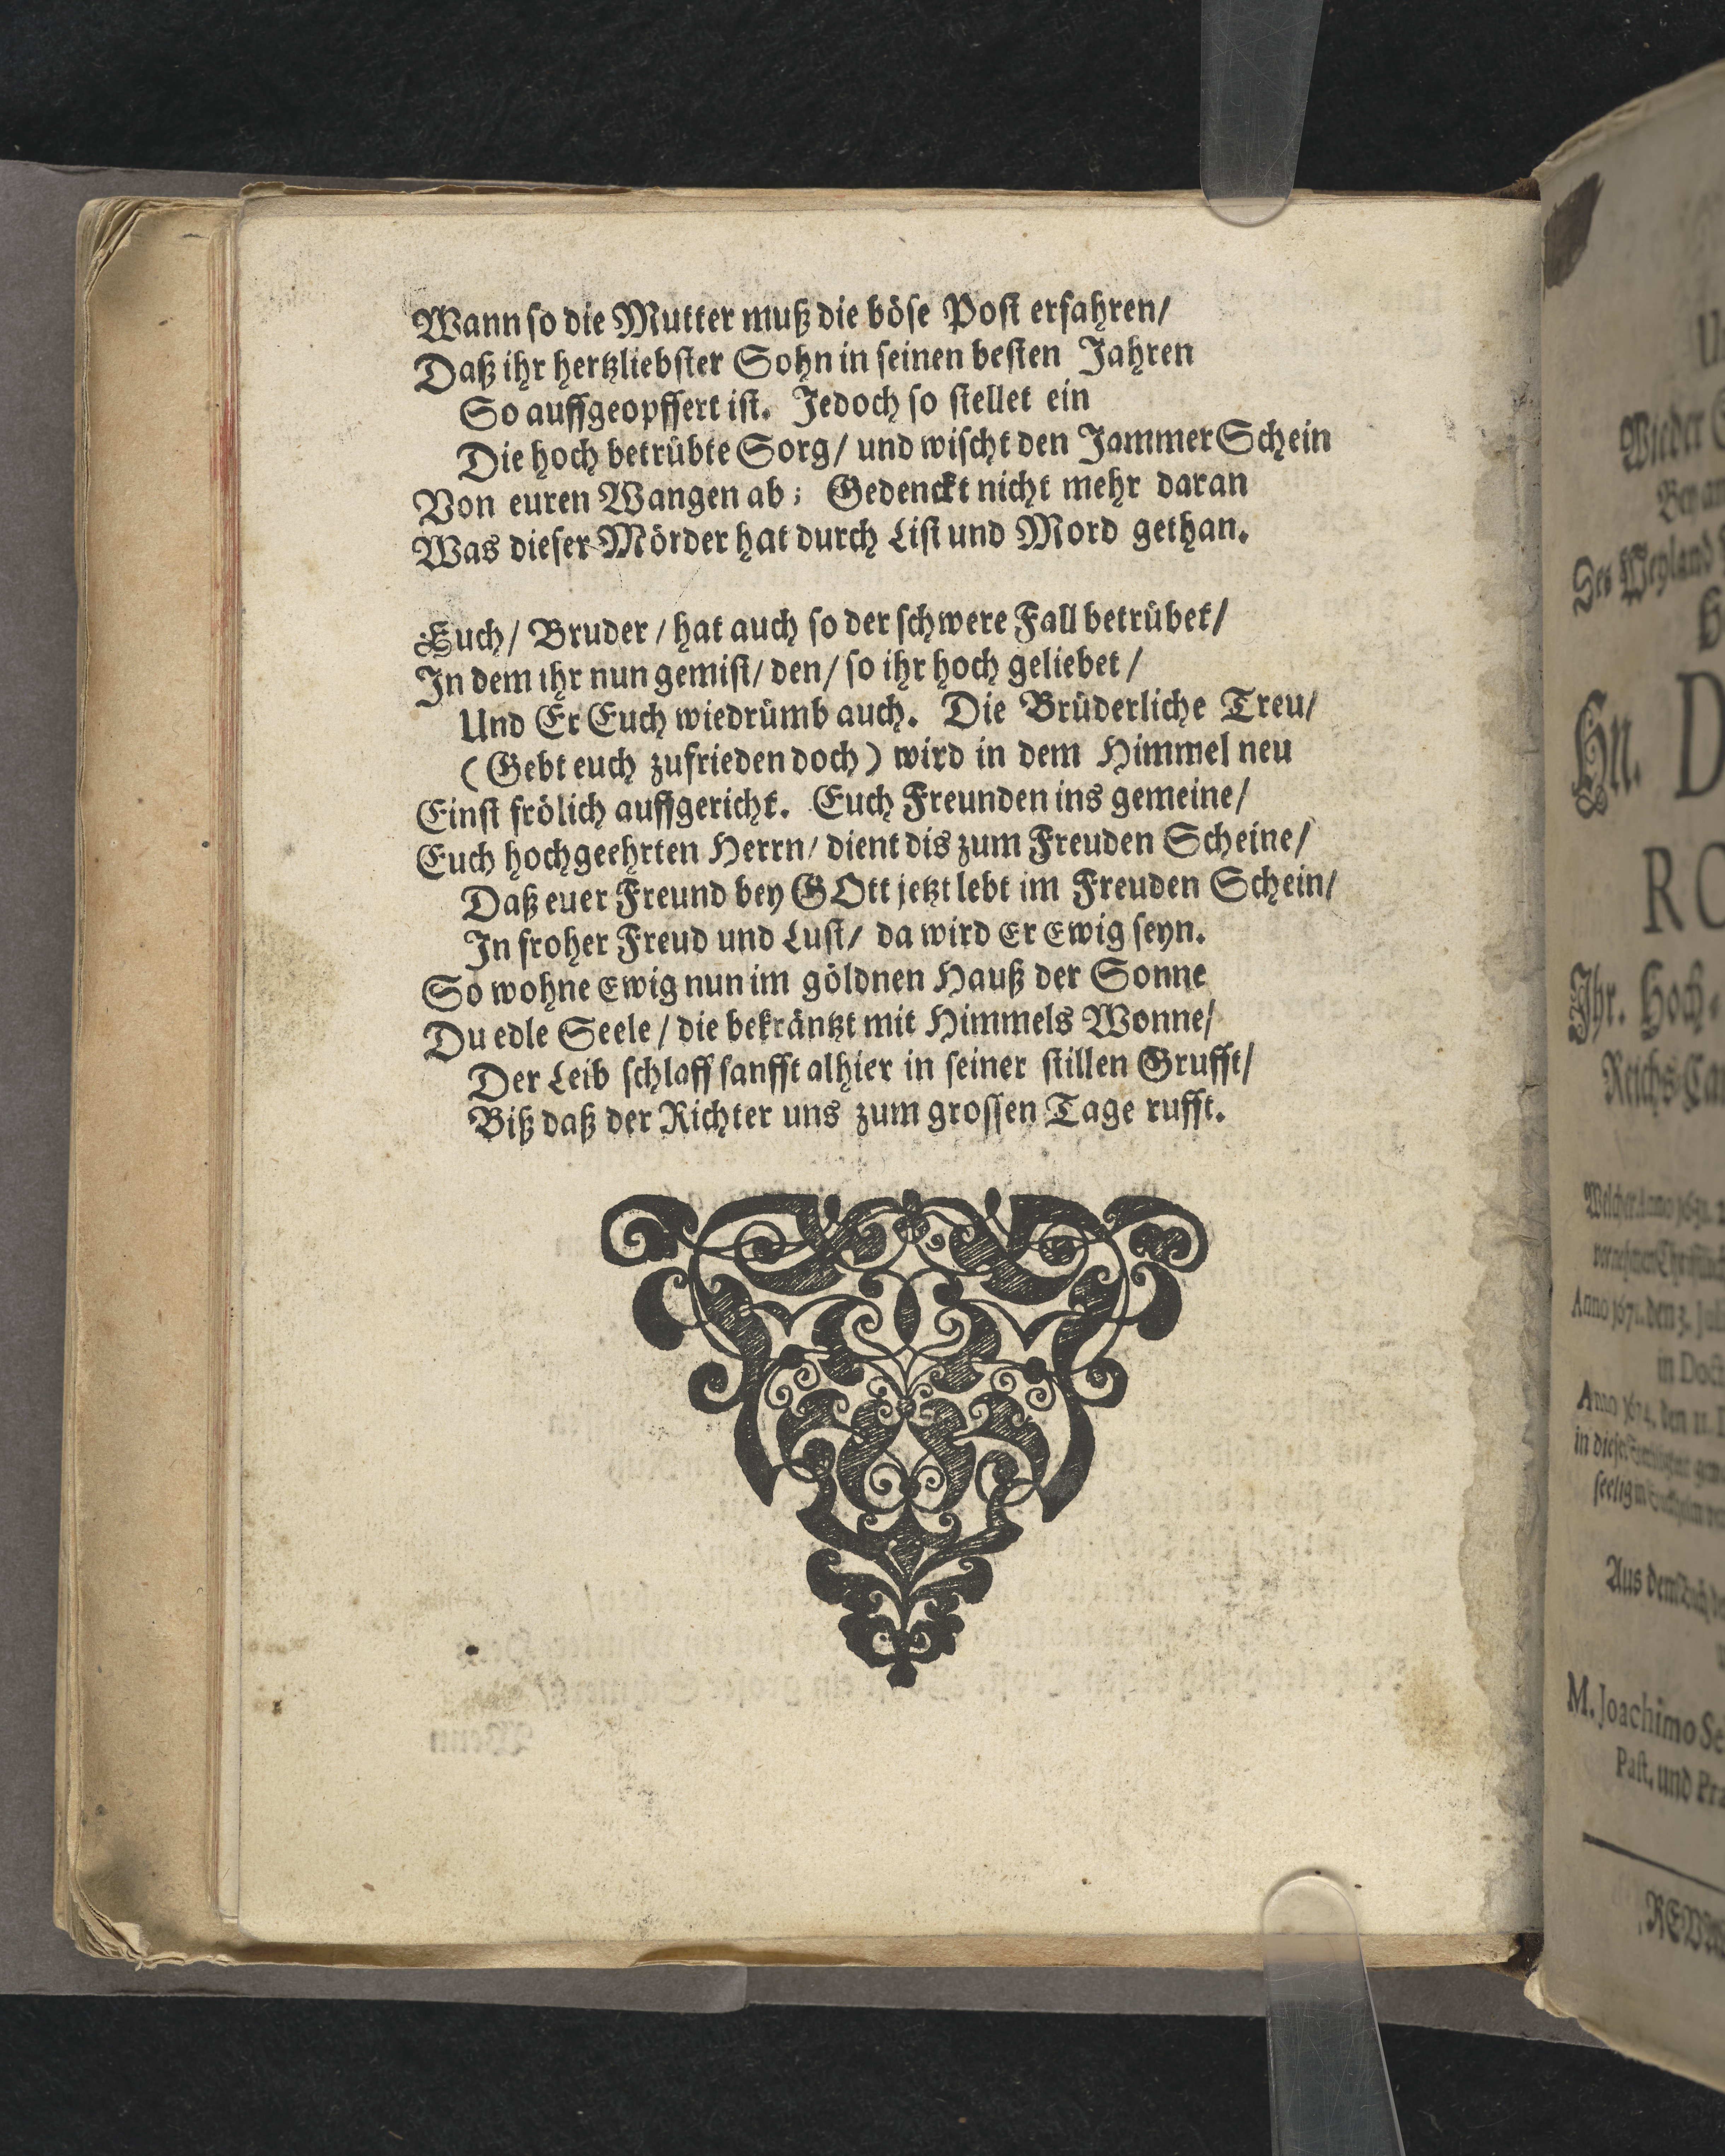 Wann so die Mutter muß die böse Post erfahren/
Daß ihr hertzliebster Sohn in seinen besten Jahren
So auffgeopffert ist. Jedoch so stellet ein
Die hoch betrübte Sorg/ und wischt den Jammer Schein
Von euren Wangen ab; Gedenckt nicht mehr daran
Was dieser Mörder hat durch List und Mord gethan.
Euch/ Bruder/ hat auch so der schwere Fall betrübet/
In dem ihr nun gemist/ den/ so ihr hoch geliebet/
Und Er Euch wiedrümb auch. Die Brüderliche Treu/
(Gebt euch zufrieden doch) wird in dem Himmel neu
Einst frölich auffgericht. Euch Freunden ins gemeine/
Euch hochgeehrten Herrn/ dient dis zum Freuden Scheine/
Daß euer Freund bey GOtt jetzt lebt im Freuden Schein/
In froher Freud und Lust/ da wird Er Ewig seyn.
So wohne Ewig nun im göldnen Hauß der Sonne
Du edle Seele/ die bekräntzt mit Himmels Wonne/
Der Leib schlaff sanfft alhier in seiner stillen Grufft/
Biß daß der Richter uns zum grossen Tage rufft.
Wieder
Des Weyland
Hn. D
RO
Ihr. Hoch-
Reichs
Anno 1671. den 3. Jul
in Doct
Anno 1674. den 11.
Aus dem
M. Joachimo Se
Past. und Pra